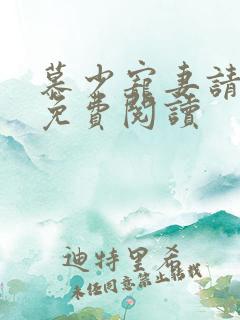 慕少寵妻請
免費閱讀
迪特里希
未任同意禁止轉載